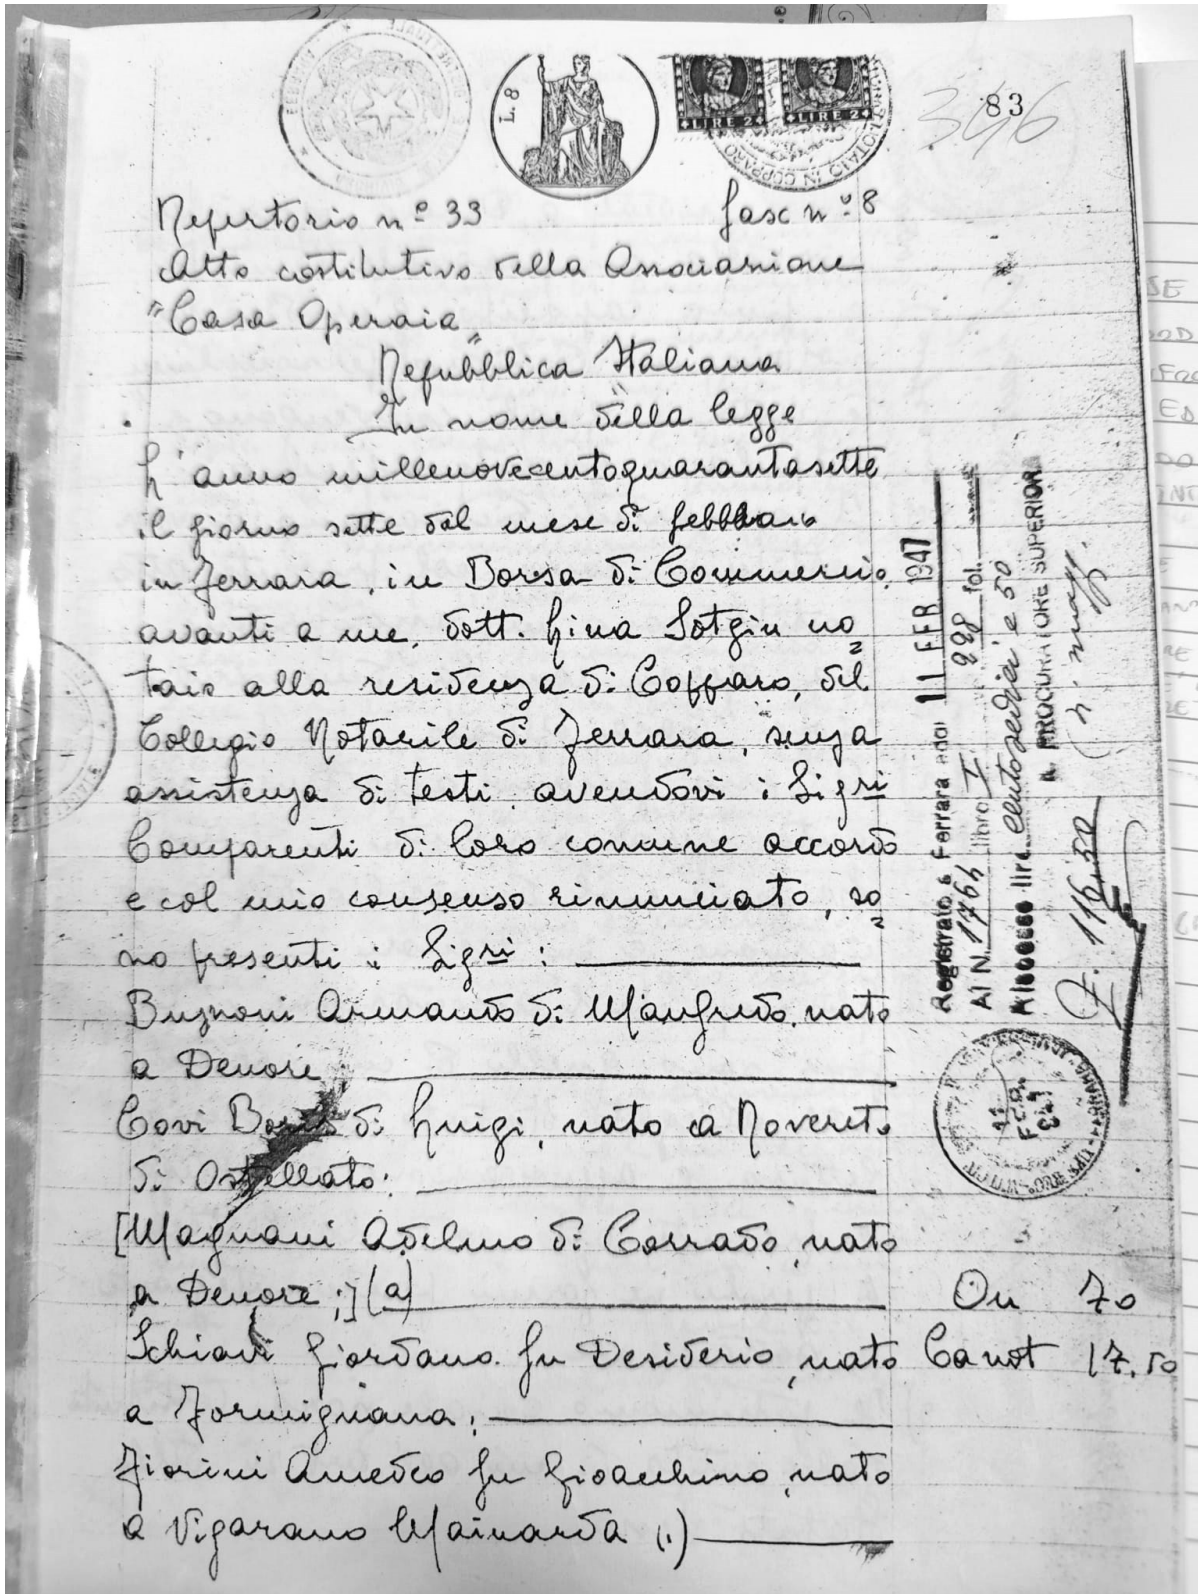 L. 8
LIRE 2
LIRE 2
NOTAIO IN COPPARO
83
346
Repertorio nº 33 fasc nº 8
Atto costitutivo della Associazione
"Casa Operaia"
Repubblica Italiana
In nome della legge
L'anno millenovecentoquarantasette
il giorno sette del mese di febbraio
in Ferrara, in Borsa di Commercio,
avanti a me, dott. Lina Sotgiu no=
taio alla residenza di Copparo, del
Collegio Notarile di Ferrara, senza
assistenza di testi, avendovi i Sigri
Comparenti di loro comune accordo
e col mio consenso rinunciato, so=
no presenti i Sigri:
Bugnoni Armando di Manfredo, nato
a Denore,
Covi di Luigi, nato a Rovereto
di Ostellato;
[Magnani Adelmo di Corrado, nato
a Denore;] (a)
Schiavi Giordano fu Desiderio, nato
a Formignana;
Fiorini Amedeo fu Gioacchino, nato
a Vigarano Mainarda (.)
Registrato a Ferrara addì 11 FEB 1947
Al N. 1764 libro I 228 fol.
Riscosso lire centosedici e 50
IL PROCURATORE SUPERIORE
£. 116,50
On 70
Canot 17.50